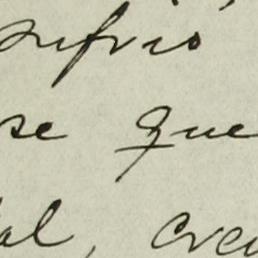 sufrio
se que
al, creu